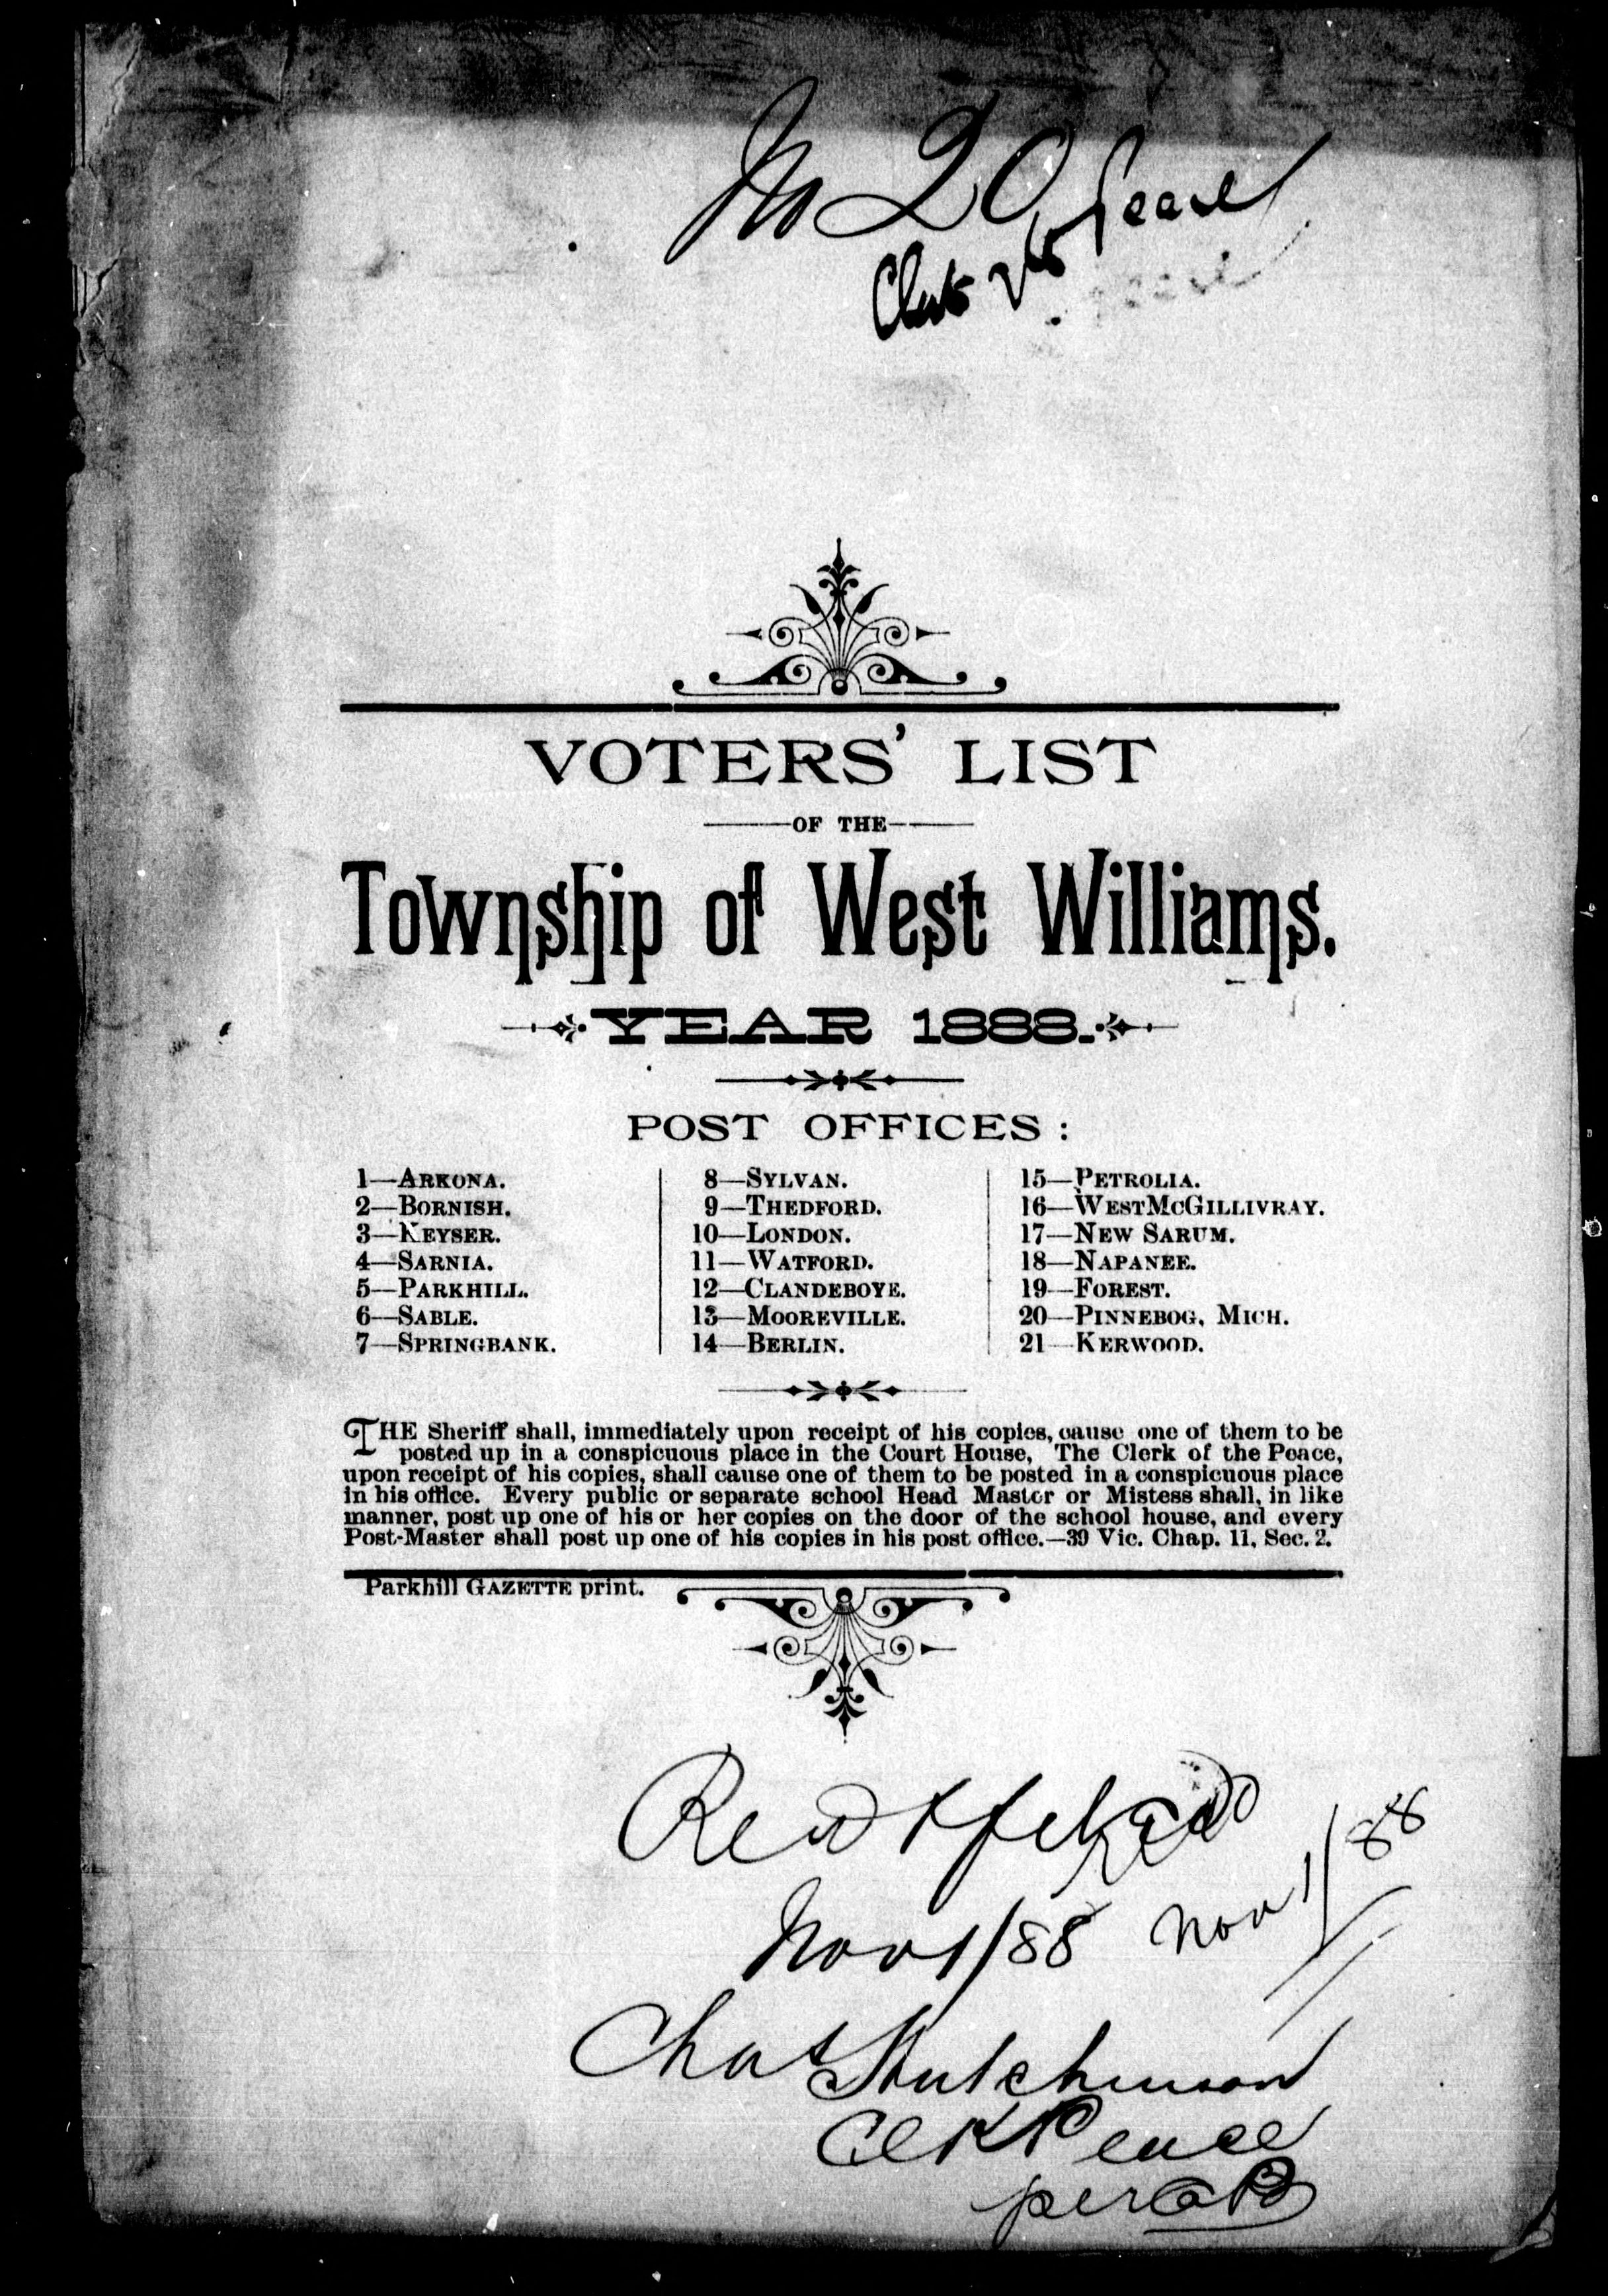 No 20
VOTERS' LIST
OF THE
Township of West Williams.
YEAR 1888.
POST OFFICES:
1—ARKONA.
2—BORNISH.
3—KEYSER.
4—SARNIA.
5—PARKHILL.
6—SABLE.
7—SPRINGBANK.
8—SYLVAN.
9—THEDFORD.
10—LONDON.
11—WATFORD.
12—CLANDEBOYE.
13—MOOREVILLE.
14—BERLIN.
15—PETROLIA.
16—WEST MCGILLIVRAY.
17—NEW SARUM.
18—NAPANEE.
19—FOREST.
20—PINNEBOG, MICH.
21—KERWOOD.
THE Sheriff shall, immediately upon receipt of his copies, cause one of them to be
posted up in a conspicuous place in the Court House, The Clerk of the Peace,
upon receipt of his copies, shall cause one of them to be posted in a conspicuous place
in his office. Every public or separate school Head Master or Mistess shall, in like
manner, post up one of his or her copies on the door of the school house, and every
Post-Master shall post up one of his copies in his post office.—39 Vic. Chap. 11, Sec. 2.
Parkhill GAZETTE print.
Nov 1/88
Nov 1/88
Chas Hutchinson
Clk Peace
per